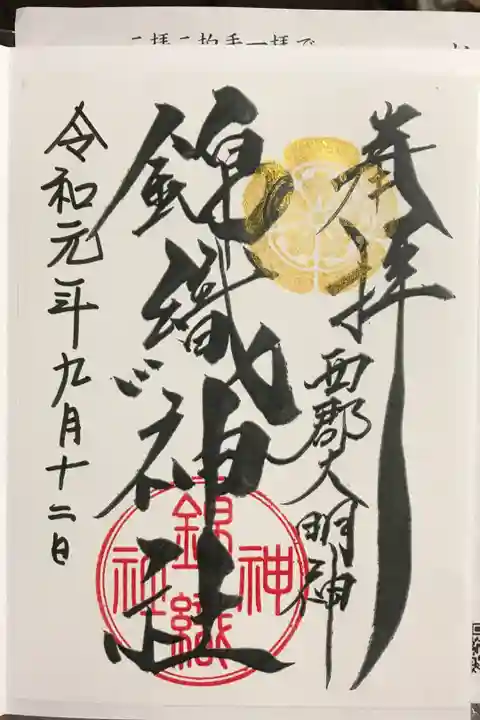 二拝二拍手一拝で
奉拝
西郡大明神
錦織神社
令和元年九月十二日
錦織
神社